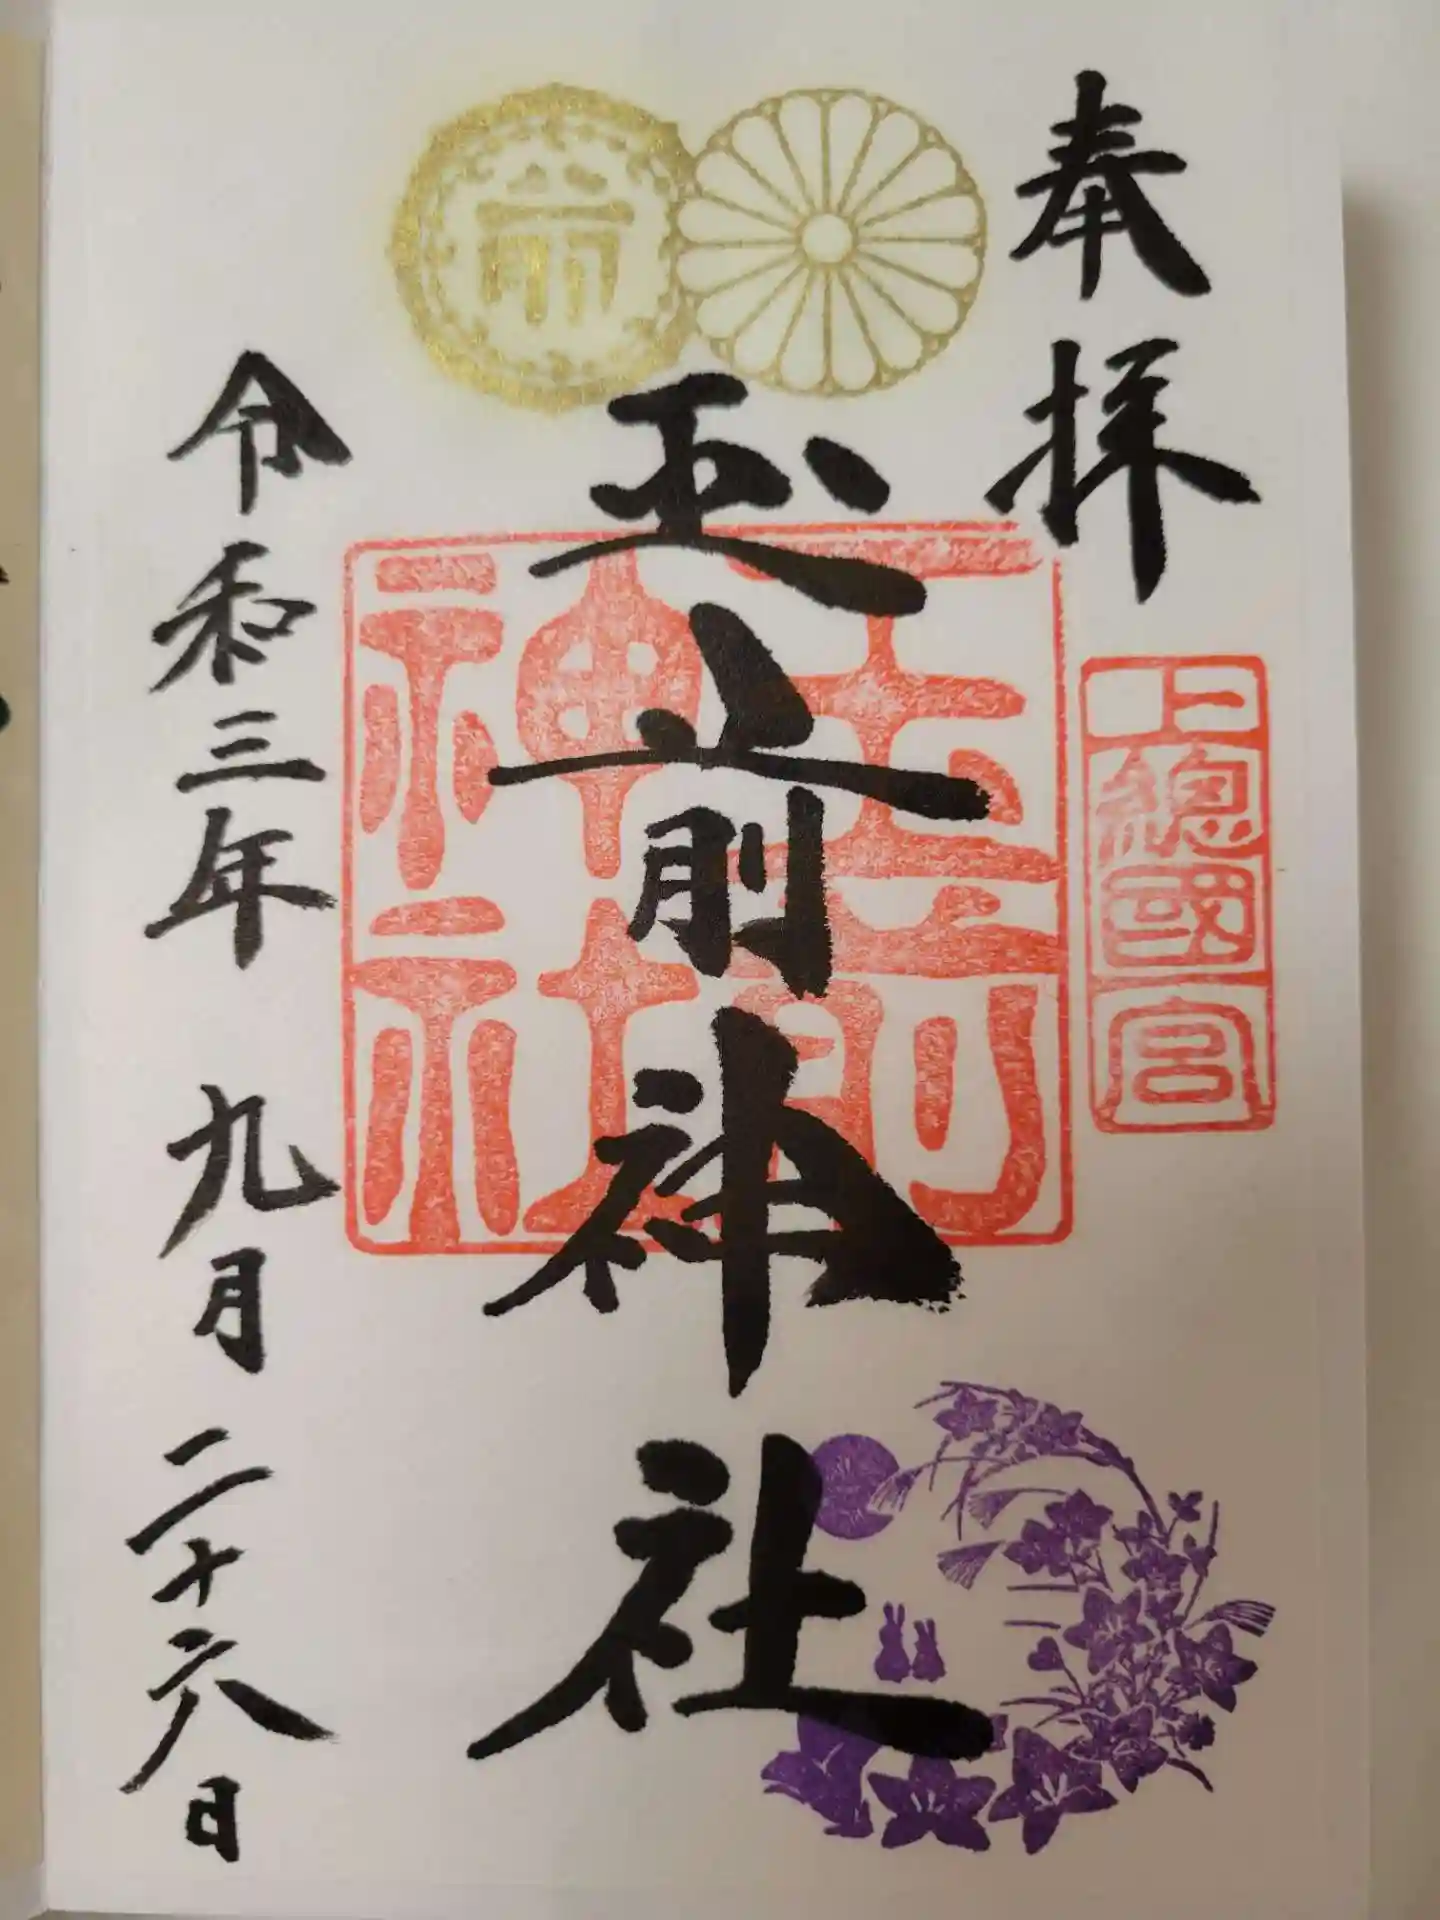 奉拝
上總國一宮
玉前神社
玉前神社
令和三年 九月 二十六日